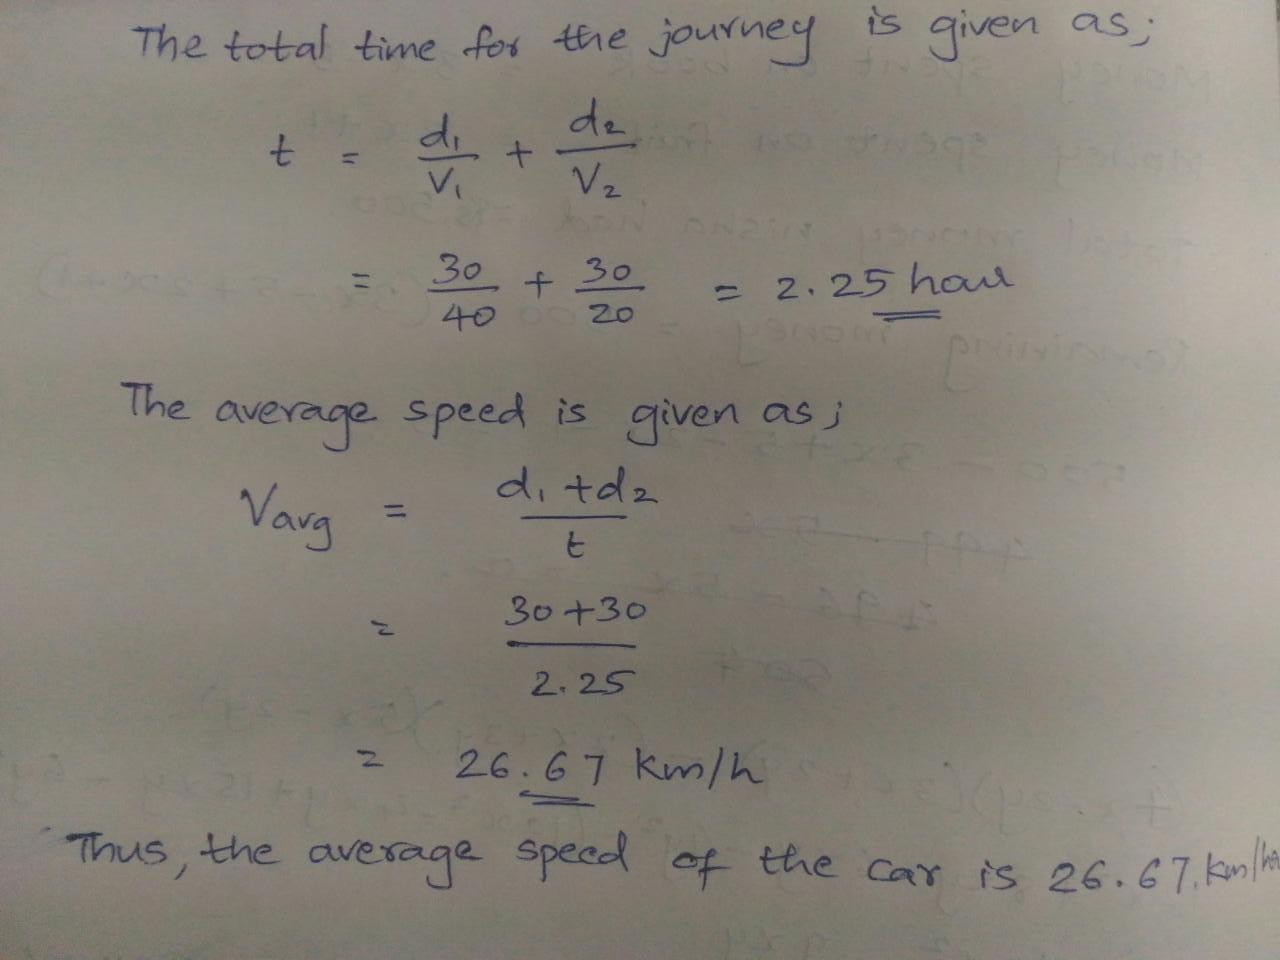 The total time for the journey is given as;
t = d1/V1 + d2/V2
= 30/40 + 30/20 = 2.25 hour
The average speed is given as;
Varg = d1 + d2 / t
= 30+30 / 2.25
= 26.67 km/h
Thus, the average speed of the car is 26.67.